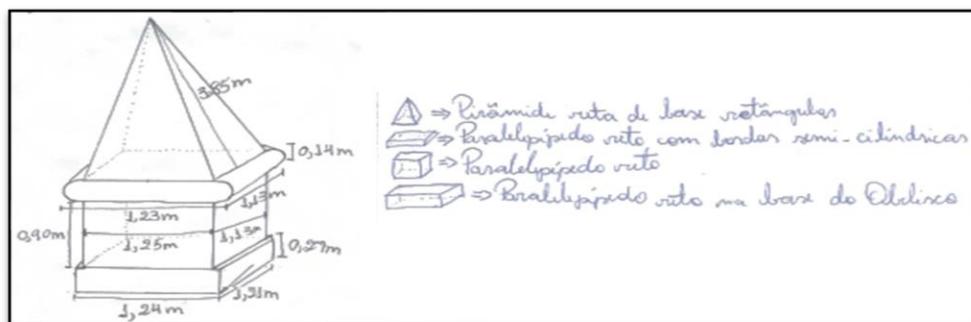 3,85m
0,14m
1,13m
1,23m
0,90m
1,25m
1,13m
0,27m
1,24m
⇒ Pirâmide reta de base retângular
⇒ Paralelepípedo reto com bordas semi-cilíndricas
⇒ Paralelepípedo reto
⇒ Paralelepípedo reto na base do Obelisco